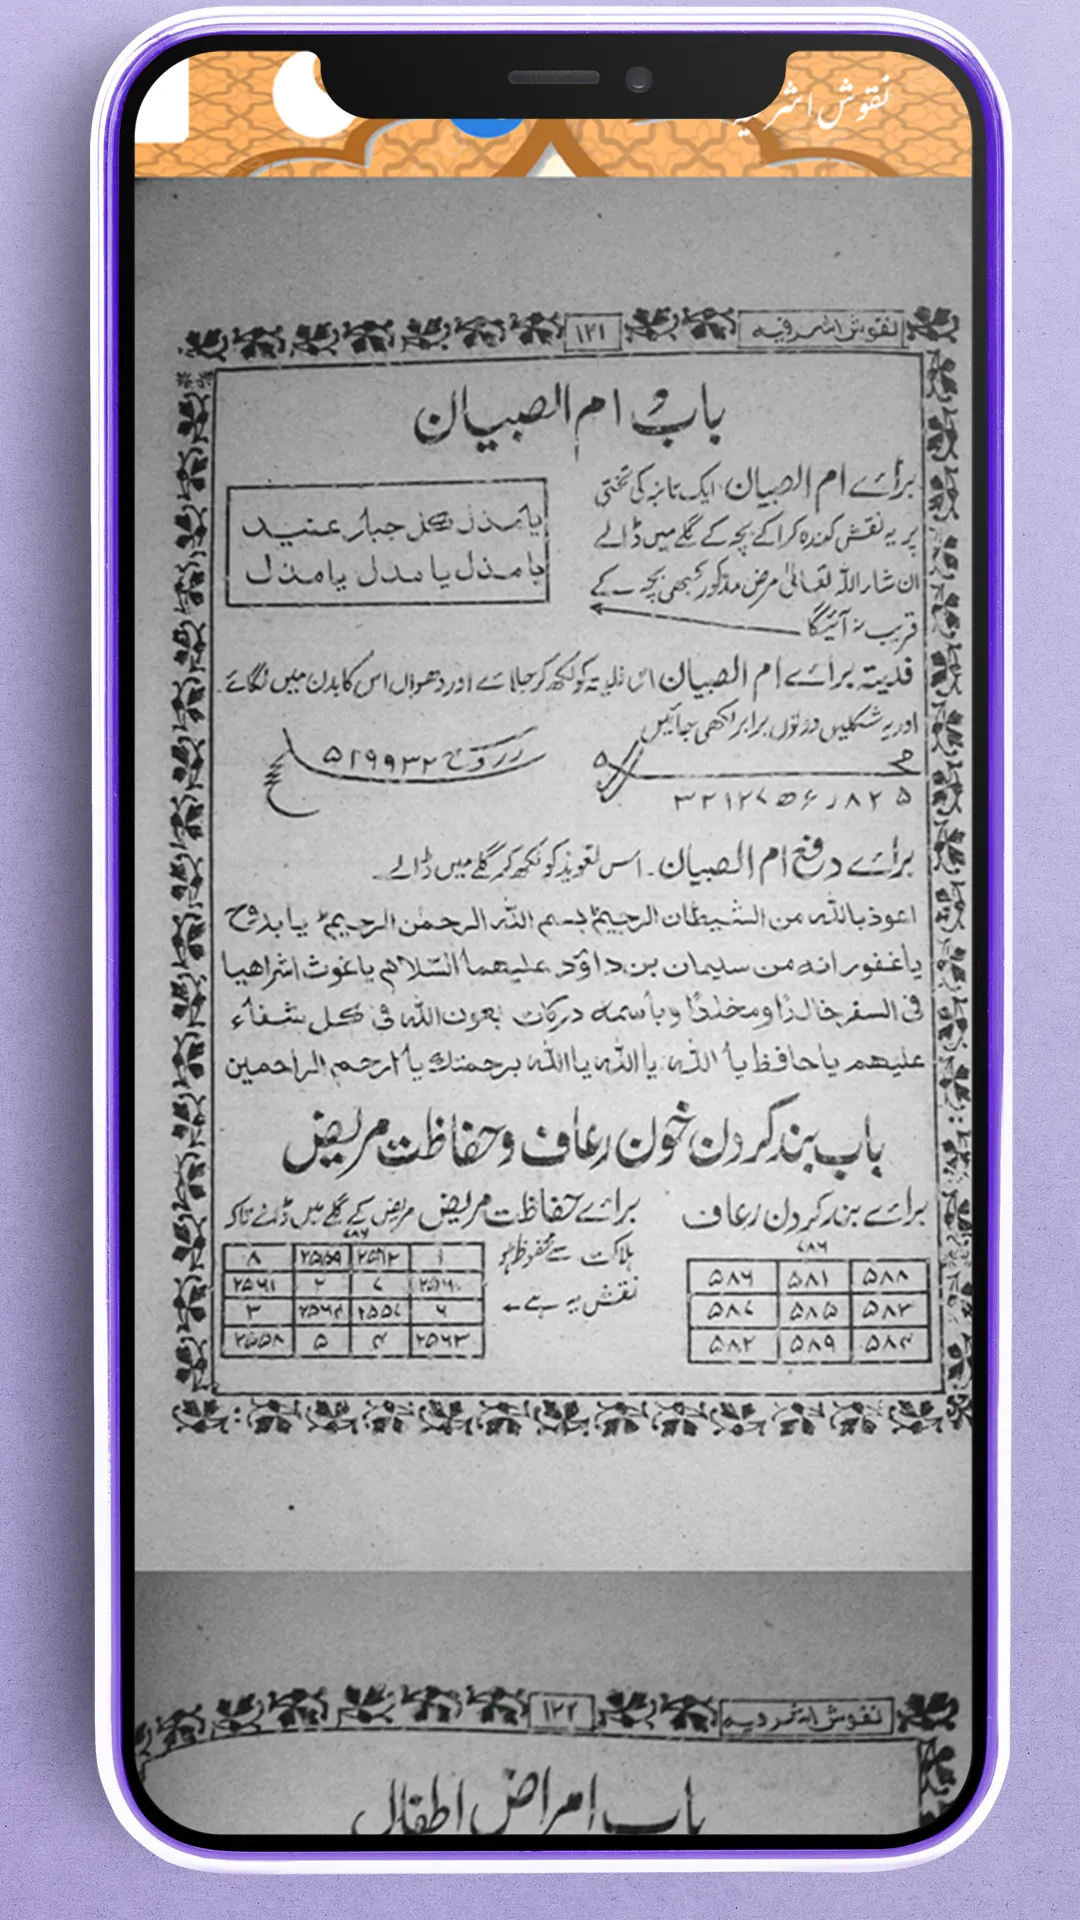 نقوش اشرفیہ
نقوش اشرفیہ
۱۲۱
باب ام الصبیان
برائے ام الصبیان ایک تانبہ کی تختی
پر یہ نقش کندہ کرا کے بچہ کے گلے میں ڈالے
ان شاء اللہ تعالیٰ مرض مذکور کبھی بچہ کے
قریب نہ آئیگا
یا مذل کل جبار عنید
یا مذل یا مذل یا مذل
فدیتہ برائے ام الصبیان اس فلیتہ کو لکھ کر جلائے اور دھواں اس کا بدن میں لگائے
اور یہ شکلیں دونوں برابر لکھی جائیں
۵۱۹۹۳۲
برائے دفع ام الصبیان۔ اس تعویذ کو لکھ کر گلے میں ڈالے۔
اعوذ باللہ من الشیطان الرجیم بسم اللہ الرحمٰن الرحیم یا بدوح
یا غفور انہ من سلیمان بن داؤد علیہما السّلام یا غوث اشراھیا
فی السفر خالدًا ومخلدًا وباسمہ درکات بعون اللہ فی کل شفاء
علیھم یا حافظ یا اللہ یا اللہ یا اللہ برحمتک یا ارحم الراحمین
باب بند کردن خون رعاف و حفاظت مریض
برائے بند کردن رعاف
۷۸۶
۵۸۸ ۵۸۱ ۵۸۶
۵۸۳ ۵۸۵ ۵۸۷
۵۸۴ ۵۸۹ ۵۸۲
برائے حفاظت مریض مریض کے گلے میں ڈالے تاکہ
ہلاکت سے محفوظ ہو
نقش یہ ہے
۷۸۶
۱ ۲۵۶۲ ۲۵۵۹ ۸
۲۵۶۰ ۷ ۲ ۲۵۶۱
۶ ۲۵۵۷ ۲۵۶۴ ۳
۲۵۶۳ ۴ ۵ ۲۵۵۸
نقوش اشرفیہ
۱۲۲
باب امراض اطفال